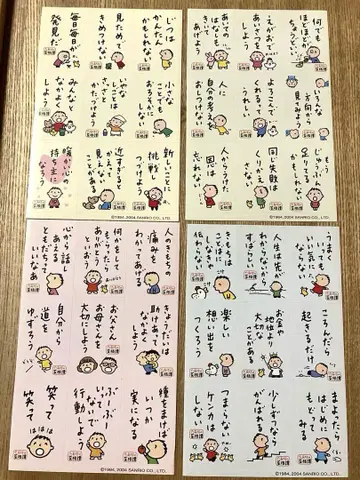 じつは
かんたん
かもしれない
見ためで
きめつけ
ない
毎日毎日が
発見だ
小さな
ことでも
おろそかに
しない
いやな
ことは
さっさと
かたづけよう
みんなと
なかよく
しよう
新しいことに
挑戦し
つづけよう
近すぎると
かえって
見えない
ことがある
持ち主に
©1984, 2004 SANRIO CO., LTD.
何でも
ほどほどが
ちょうどいい
えがおで
あいさつを
しよう
あいての
はなしも
きいて
あげよう
いろんな
方向から
見てみよう
よろこんで
くれるって
うれしい
人に
自分の考えを
おしつけない
じゅうぶん
足りてるかも
しれない
同じ失敗は
くりかえさ
ない
人からうけた
恩は
忘れない
©1984, 2004 SANRIO CO., LTD.
人のきもちの
痛みを
わかってあげる
何かをして
もらったら
ありがとうと
いおう
心から話し
あえる
ともだちって
いいなあ
きょうだいは
助けあって
なかよく
しよう
お父さん
お母さんを
大切にしよう
自分が
道を
ゆずろう
種をまけば
いつか
実になる
ぶーぶー
いわないで
行動しよう
笑って
笑って
ははは
©1984, 2004 SANRIO CO., LTD.
うまくいっても
いい気に
ならない
人生は先が
わからないから
おもしろい
きもちは
伝わらない
ころんだら
起きるだけ
お金や
地位より
大切な
ことがある
楽しい
想い出を
つくろう
まよったら
はじめに
もどって
みる
少しずつなら
がんばれる
つまらない
ケンカは
しない
©1984, 2004 SANRIO CO., LTD.